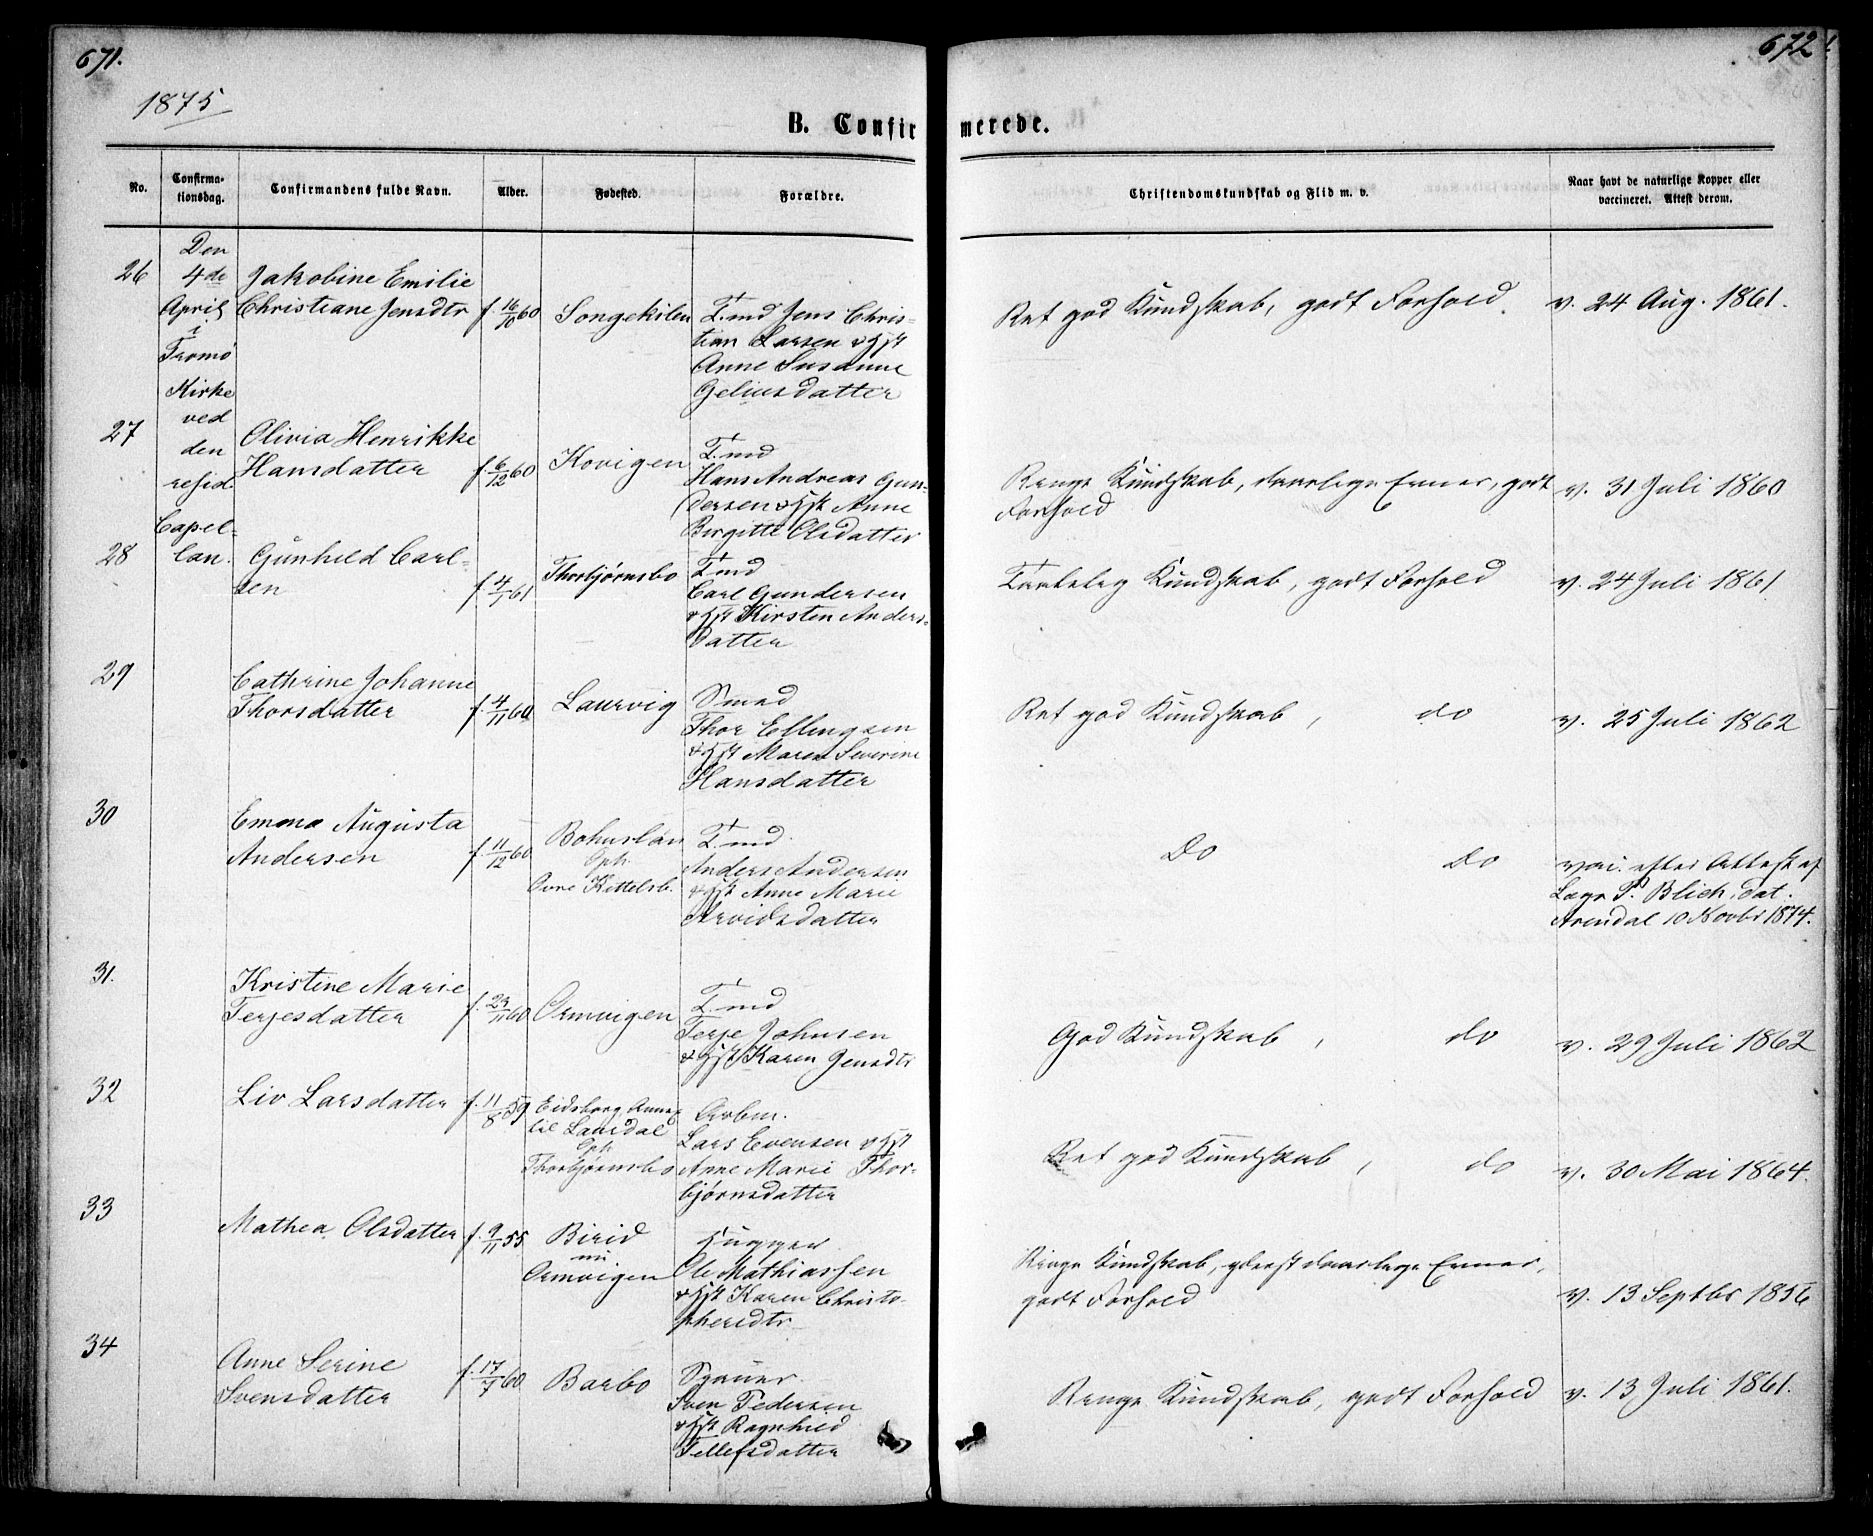 671.
672
1875
B. Confir
merede.
No.
Confirma-
tionsdag.
Confirmandens fulde Navn.
Alder.
Fødested.
Forældre.
Christendomskundskab og Flid m. v.
Naar havt de naturlige Kopper eller
vaccineret. Attest derom.
Den
4de
April
i
Tromø
Kirke
ved
den
resid.
Capel-
lan.
26
Jakobine Emilie
Christiane Jensdtr
f. 16/10 60
Songekilen
T.md Jens Chris-
tian Larsen & Hst
Anne Susanne
Geliusdatter
Ret god Kundskab, godt Forhold.
v. 24 Aug. 1861.
27
Olivia Henrikke
Hansdatter
f. 6/12 60
Kovigen
T.md
Hans Andreas Gun-
dersen & Hst Anne
Birgitte Olsdatter
Ringe Kundskab, daarlige Evner, godt
Forhold
v. 31 Juli 1860
28
Gunhild Carl-
sen
f. 4/1 61
Thorbjørnsbo
T.md
Carl Gundersen
& Hst Kirsten Anders-
datter
Taalelig Kundskab, godt Forhold
v. 24 Juli 1861
29
Cathrine Johanne
Thorsdatter
f. 4/11 60
Laurvig
Smed
Thor Ellingsen
& Hst Maren Severine
Hansdatter
Ret god Kundskab, do
v. 25 Juli 1862
30
Emma Augusta
Andersen
f. 11/12 60
Bohuslän
Oph.
Øvre Kittelsb.
T.md.
Anders Andersen
& Hst Anne Marie
Arvidsdatter
Do do
vac. efter Attest af
Læge P. Blich, dat.
Arendal 10 Novbr 1874.
31.
Kristine Marie
Terjesdatter
f. 23/11 60
Ormvigen
T.md
Terje Johnsen
& Hst Karen Jensdtr
God Kundskab, do
v. 29 Juli 1862
32
Liv Larsdatter
f. 11/8 59
Eidsborg Annex
til Laurdal
Oph.
Thorbjørnsbo
Arbm.
Lars Evensen & Hst
Anne Marie Thor-
bjørnsdatter
Ret god Kundskab, do
v. 30 Mai 1864.
33
Mathea Olsdatter
f. 9/11 55
Birid
nu
Ormvigen
Hugger
Ole Mathiassen
& Hst Karen Christo-
phersdtr
Ringe Kundskab, yderst daarlige Evner,
godt Forhold
v. 13 Septbr 1856
34
Anne Serine
Svensdatter
f. 17/7 60
Barbo
Sven Pedersen
& Hst Ragnhild
Tellefsdatter
Ringe Kundskab, godt Forhold
v. 13 Juli 1861.